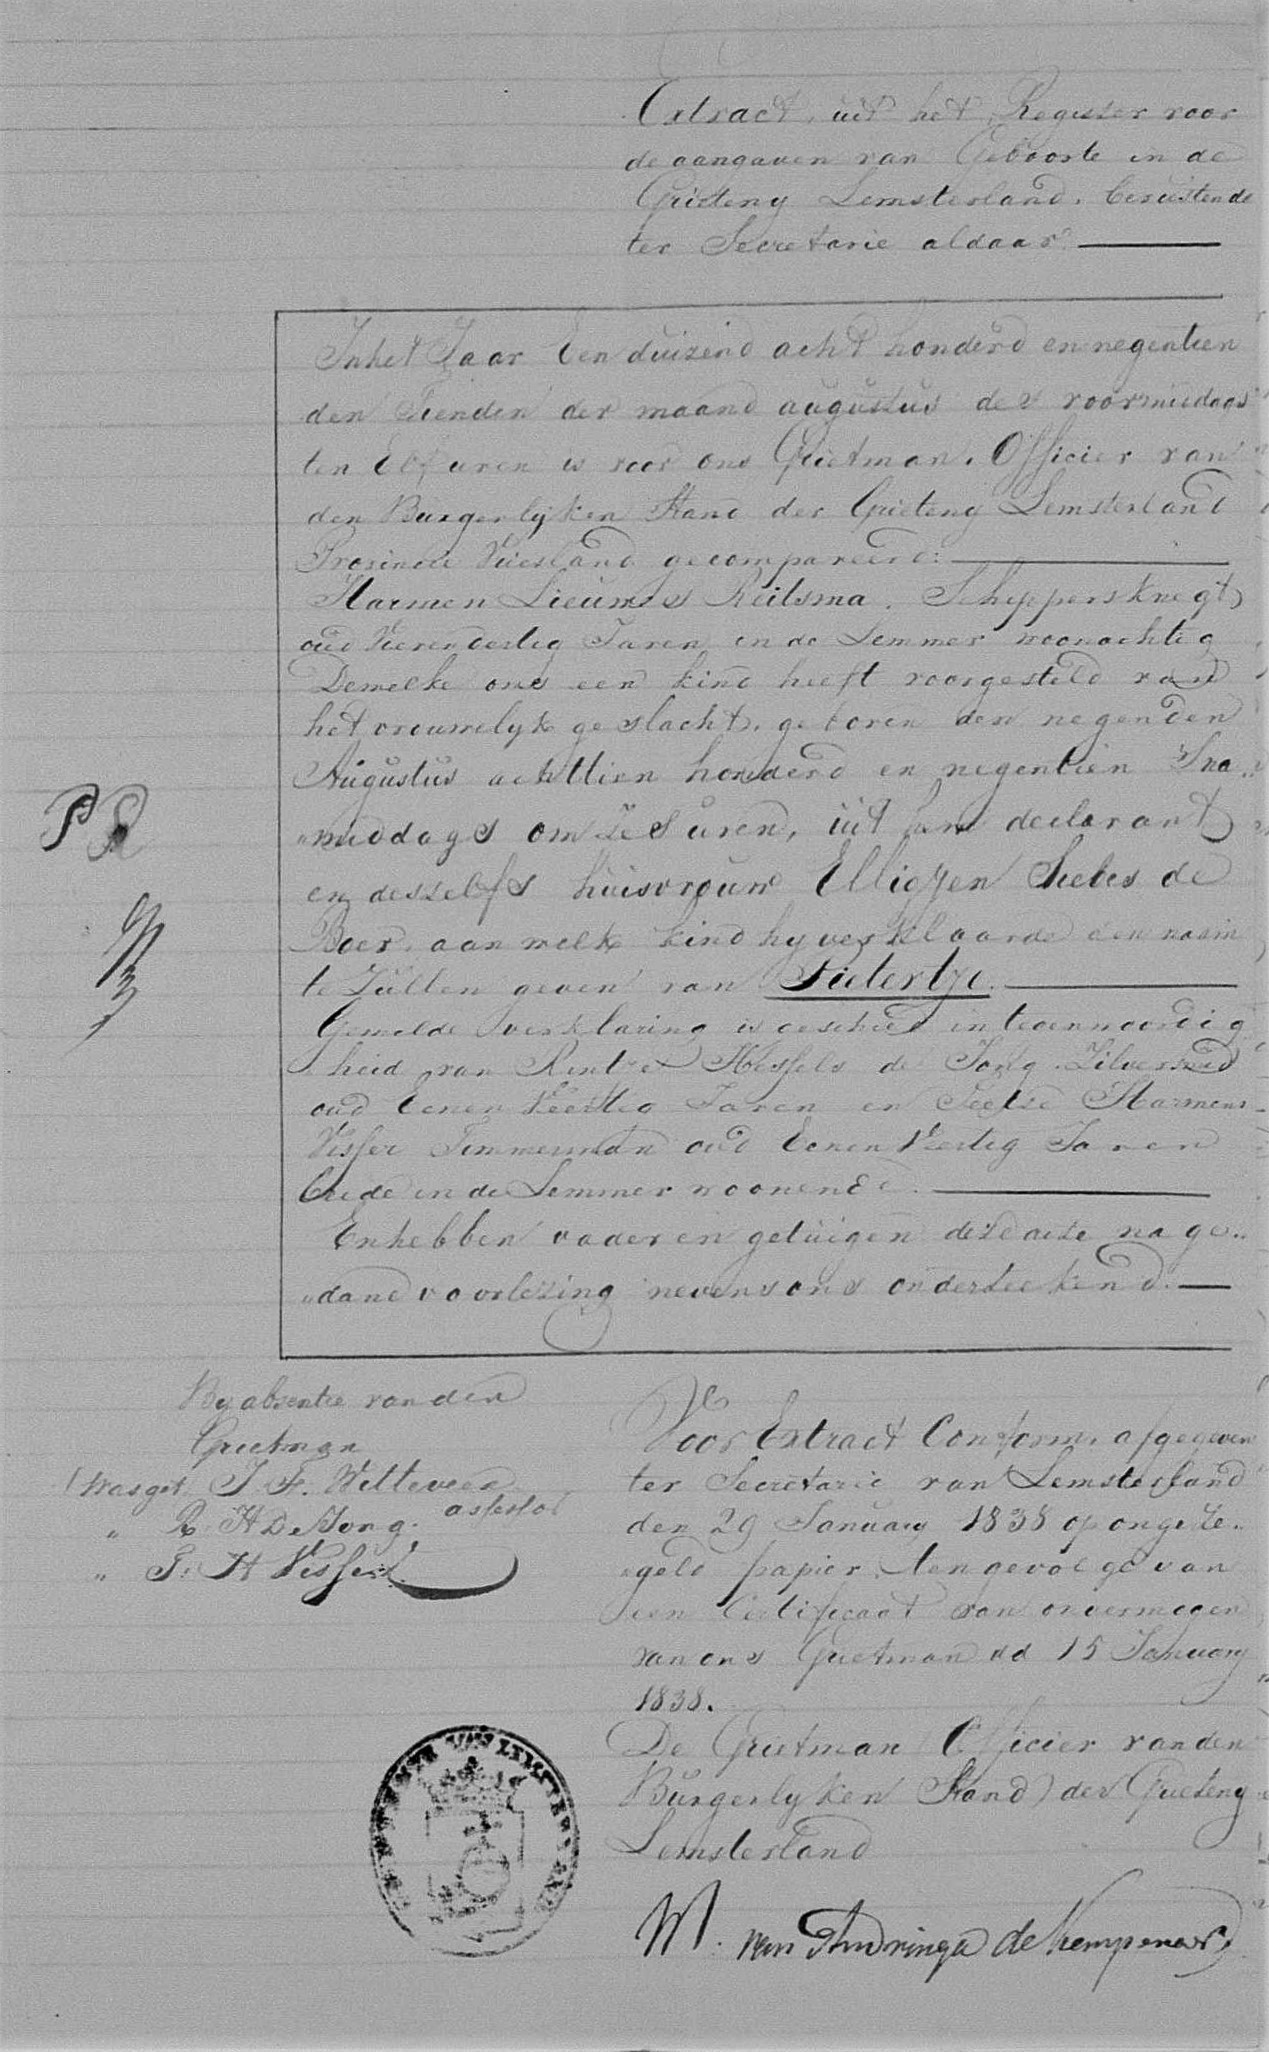 Extract, uit het Register voor
de aangaven van Geboorte in de
Grieteny Lemsterland, berustende
ter Secretarie aldaar
In het Jaar Een duizend acht honderd en negentien
den Tienden der maand augustus des voormiddags
ten Elf uren is voor ons Grietman, Officier van
den Burgerlyken Stand der Grieteny Lemsterland
Provincie Vriesland gecompareerd:
Harmen Lieuwes Reitsma, Schippersknegt
oud Vierendertig Jaren in de Lemmer woonachtig
Dewelke ons een kind heeft voorgesteld van
het vrouwelyk geslacht, geboren den negenden
Augustus achttien honderd en negentien 's na..
"middags om zes uren, uit hem declarant
en deszelfs huisvrouw Elligjen Siebes de
Boer, aan welk kind hy verklaarde den naam
te Zullen geven van Pietertje.
Gemelde verklaring is geschied in tegenwoordig
heid van Rintze Hessels de Jong Zilversmid
oud Eenen Veertig Jaren en Harmens
Visser Timmerman oud Eenen Veertig Jaren
beide in de Lemmer woonende.
En hebben vader en getuigen deze acte na ge..
"dane voorlezing nevens ons onderteekend.
By absentie van den
Grietman
(was get. J. F. Witteveen
assessor
" R. H. De Jong.
" T. H. Visser
Voor Extract Conform, afgegeven
ter Secretarie van Lemsterland
den 29 January 1838 op ongeze..
"geld papier, ten gevolge van
een Certificaat van onvermogen
van ons Grietman dd 15 January
1838.
De Grietman Officier van den
Burgerlyken Stand der Grieteny
Lemsterland
M. van Andringa de Kempenaer